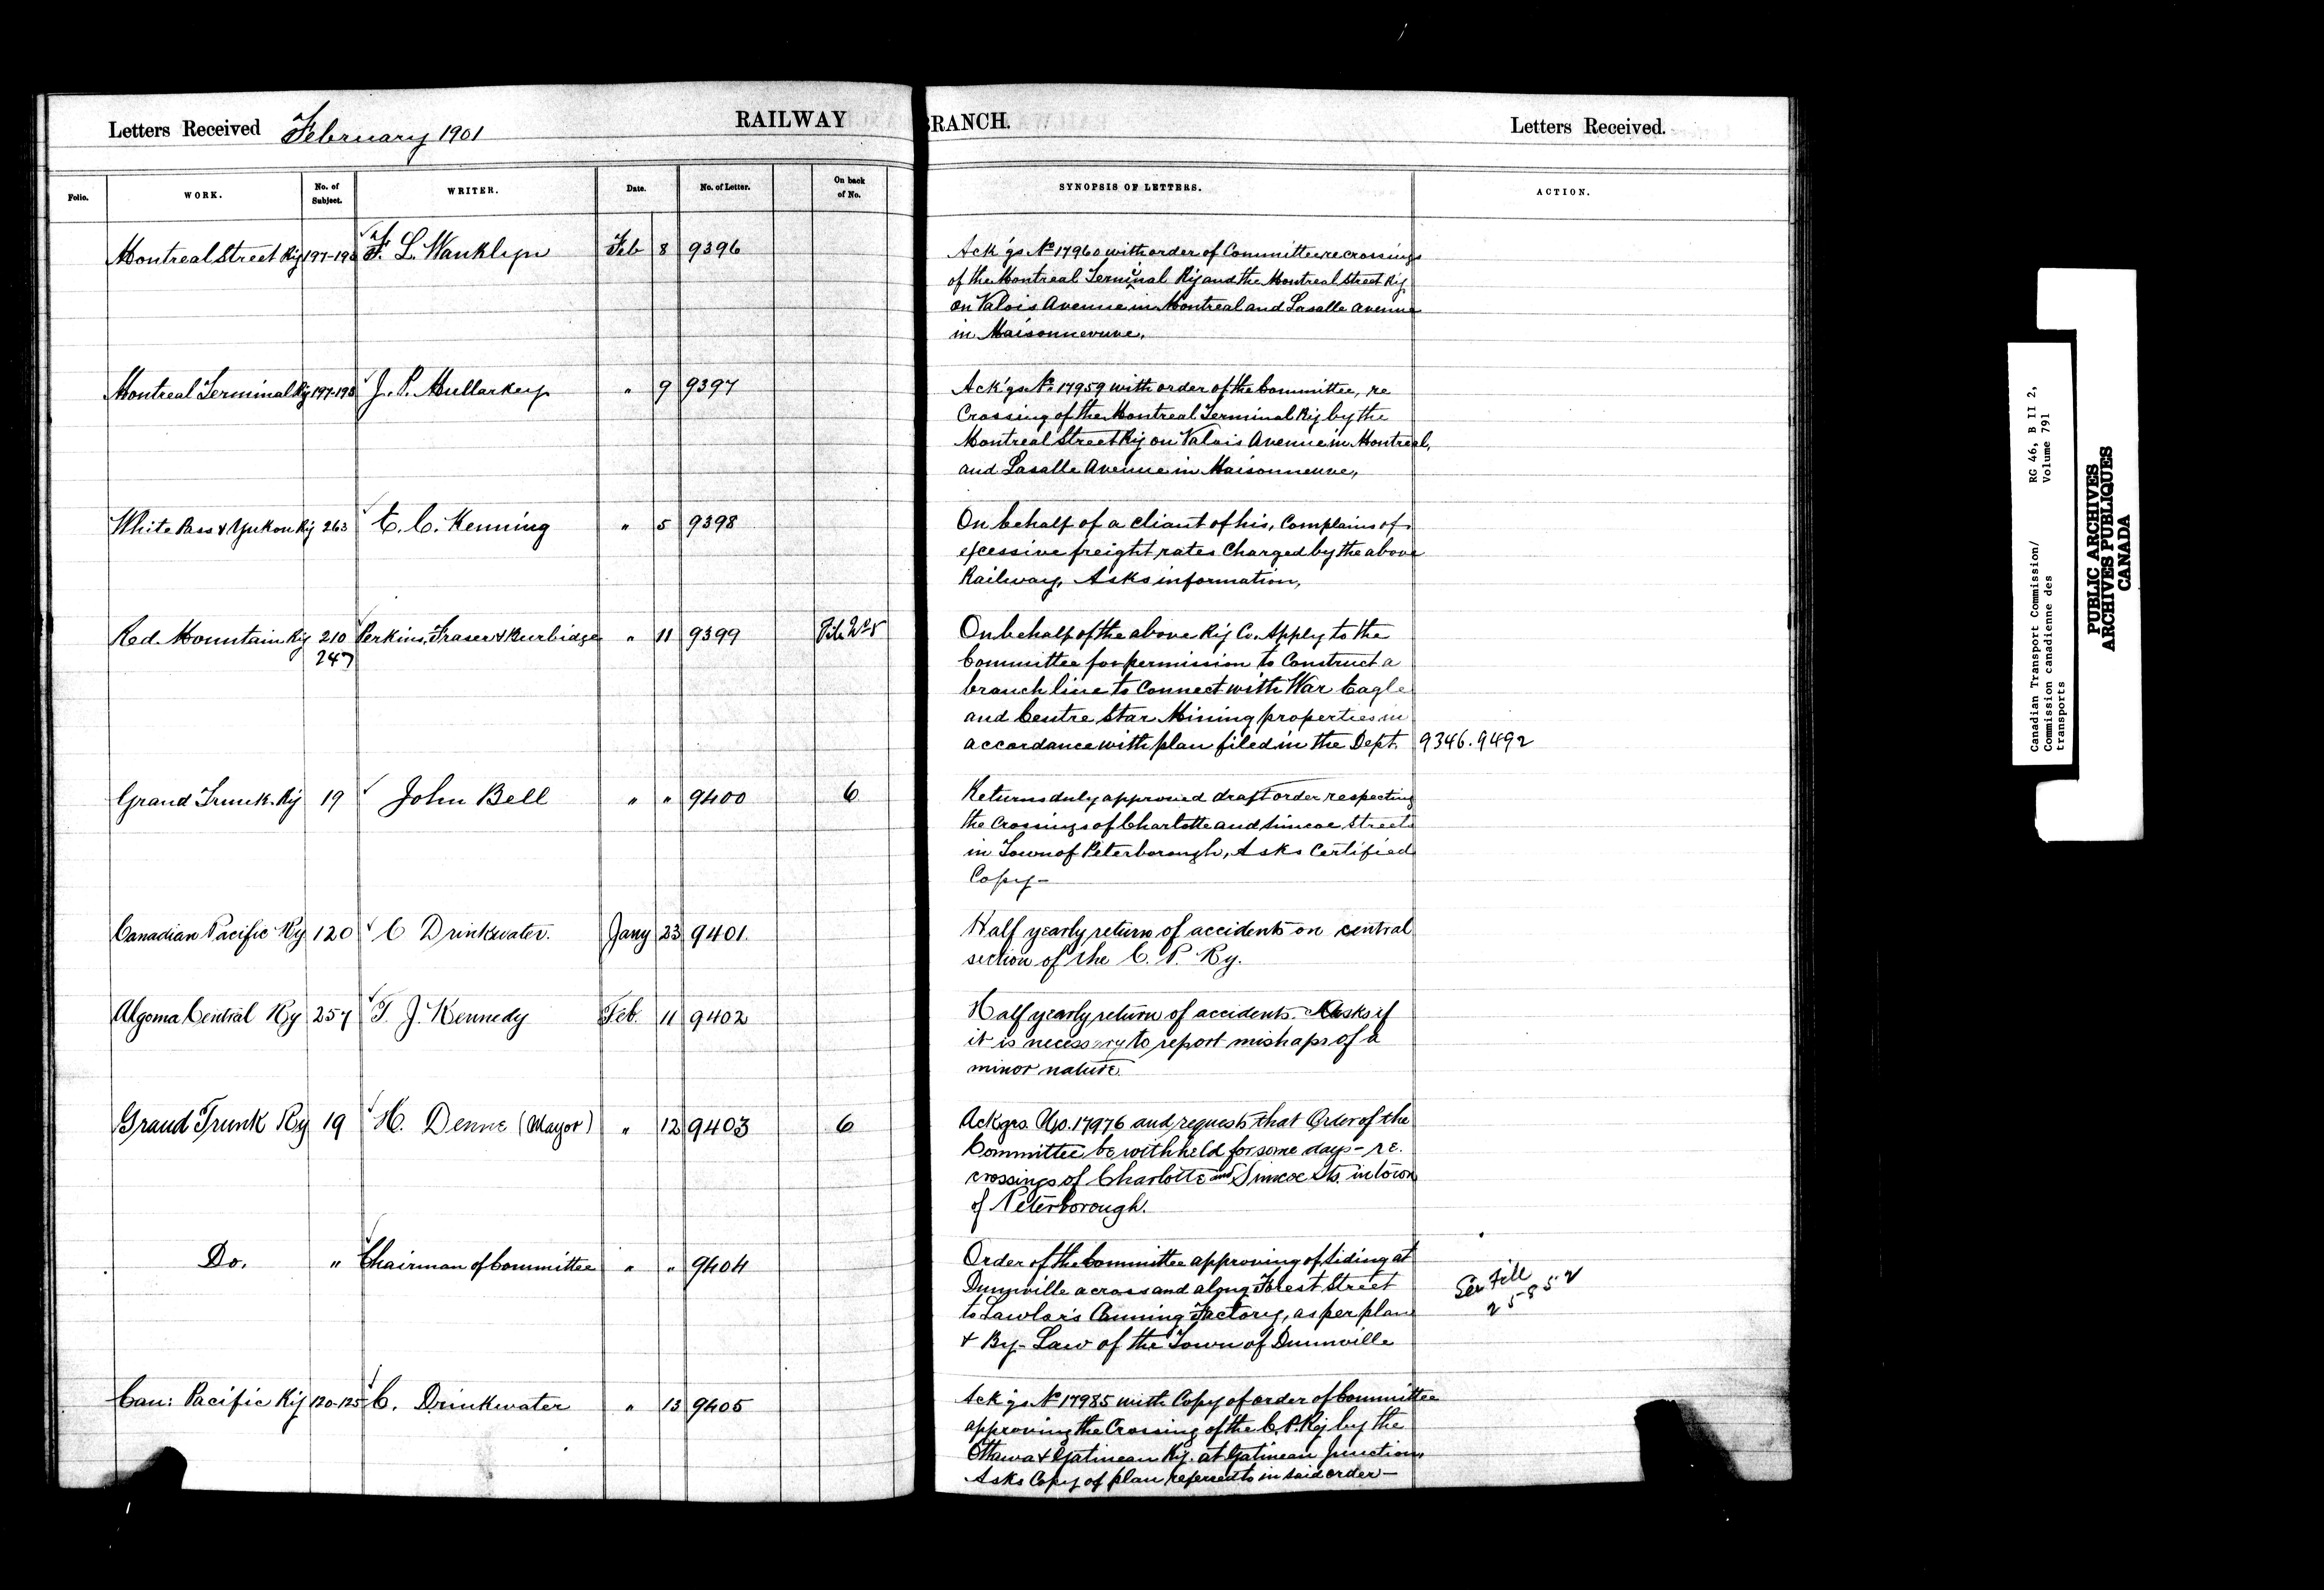 Letters Received February 1901 RAILWAY BRANCH. Letters Received.
Folio. WORK. No. of Subject. WRITER. Date. No. of Letter. On back of No. SYNOPSIS OF LETTERS. ACTION.
Montreal Street Ry 197-198 F. L. Wanklyn Feb 8 9396 Ack'gs No 17960 with order of Committee re crossings
of the Montreal Terminal Ry and the Montreal Street Ry
on Valois Avenue in Montreal and Lasalle Avenue
in Maisonneuve.
Montreal Terminal Ry 197-198 J. P. Mullarkey " 9 9397 Ack'gs No 17959 with order of the Committee, re
Crossing of the Montreal Terminal Ry by the
Montreal Street Ry on Valois Avenue in Montreal,
and Lasalle Avenue in Maisonneuve,
White Pass & Yukon Ry 263 C. C. Kenning " 5 9398 On behalf of a cliant of his, Complains of
excessive freight rates Charged by the above
Railway, Asks information,
Red Mountain Ry 210 Perkins, Fraser & Burbidge " 11 9399 On behalf of the above Ry Co. Apply to the
247 Committee for permission to Construct a
branch line to Connect with War Eagle
and Centre Star Mining properties in
accordance with plan filed in the Dept. 9346.9492
Grand Trunk Ry 19 John Bell " " 9400 6 Returns duly approved draft order respecting
the Crossings of Charlotte and Simcoe Streets
in Town of Peterborough, Asks Certified
Copy -
Canadian Pacific Ry 120 C Drinkwater. Jany 23 9401. Half yearly return of accidents on central
section of the C. P. Ry.
Algoma Central Ry 257 T. J. Kennedy Feb. 11 9402 Half yearly return of accidents. Asks if
it is necessary to report mishaps of a
minor nature
Grand Trunk Ry 19 H. Denne (Mayor) " 12 9403 6 Ackgs. No. 17976 and requests that Order of the
Committee be withheld for some days - re.
crossings of Charlotte and Simcoe Sts. in town
of Peterborough.
Do. " Chairman of Committee " " 9404 Order of the Committee approving of Siding at
Dunnville across and along Forest Street See File
to Lawlor's Canning Factory, as per plan 25852
& By-Law of the Town of Dunnville
Can: Pacific Ry 120-125 C. Drinkwater " 13 9405 Ack'gs No 17985 with Copy of order of Committee
approving the Crossing of the C. P. Ry by the
Ottawa & Gatineau Ry. at Gatineau Junction,
Asks Copy of plan referred to in said order -
Canadian Transport Commission/ RG 46, B II 2,
Commission canadienne des Volume 791
transports
PUBLIC ARCHIVES
ARCHIVES PUBLIQUES
CANADA